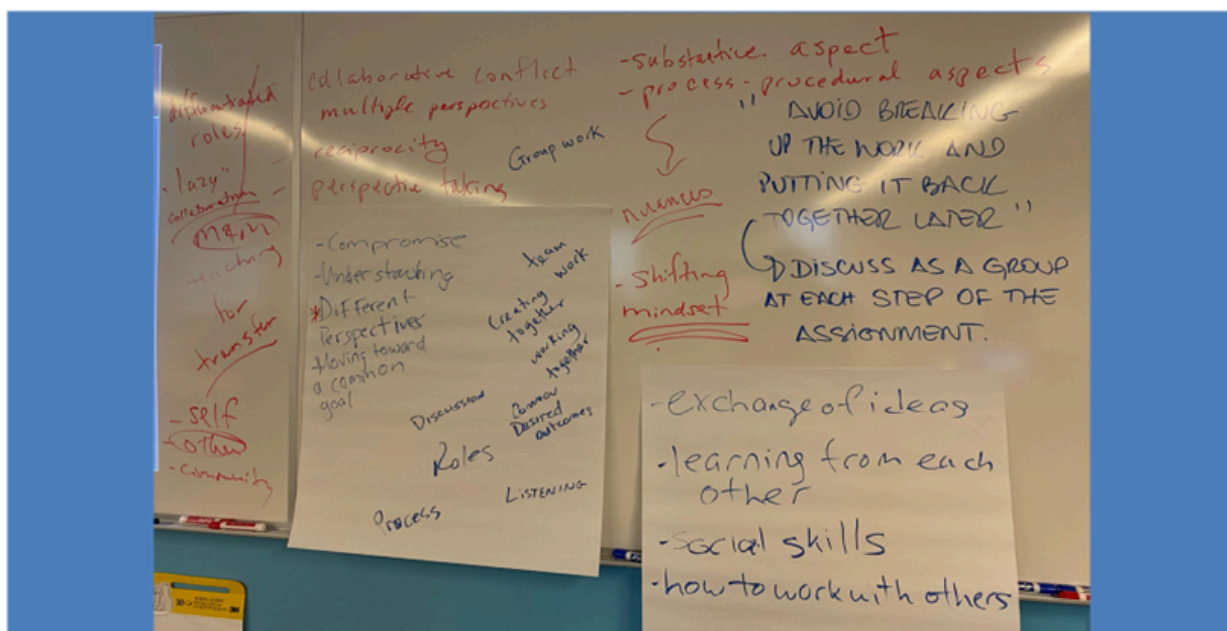 differentiated
roles
"lazy"
collaboration
M&M
teaching
for
transfer
- self
- other
- community
collaborative conflict
multiple perspectives
reciprocity
perspective taking
Group work
- substantive aspect
- process - procedural aspects
nuances
- shifting
mindset
"AVOID BREAKING
UP THE WORK AND
PUTTING IT BACK
TOGETHER LATER"
DISCUSS AS A GROUP
AT EACH STEP OF THE
ASSIGNMENT.
- Compromise
- Understanding
* Different
Perspectives
- Moving toward
a common
goal
team
work
Creating
together
working
together
Discussion
Common
Desired
outcomes
Roles
LISTENING
Process
- exchange of ideas
- learning from each
other
- social skills
- how to work with others